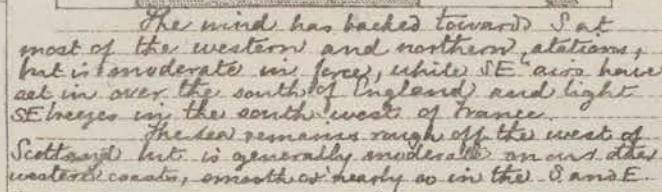 The wind has backed towards S at
most of the western and northern stations,
but is moderate in force, while SE airs have
set in over the south of England and light
SE breezes in the south west of France.
The sea remains rough off the west of
Scotland but is generally moderate on our other
western coasts, smooth or nearly so in the S and E.